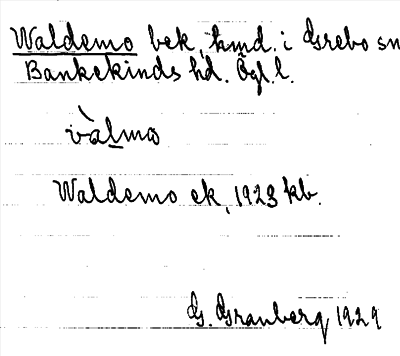 Waldemo bek, kmd. i Grebo sn
Bankekinds hd. Ögl. l.
vàlmo
Waldemo ek, 1923 kb.
G. Granberg 1929